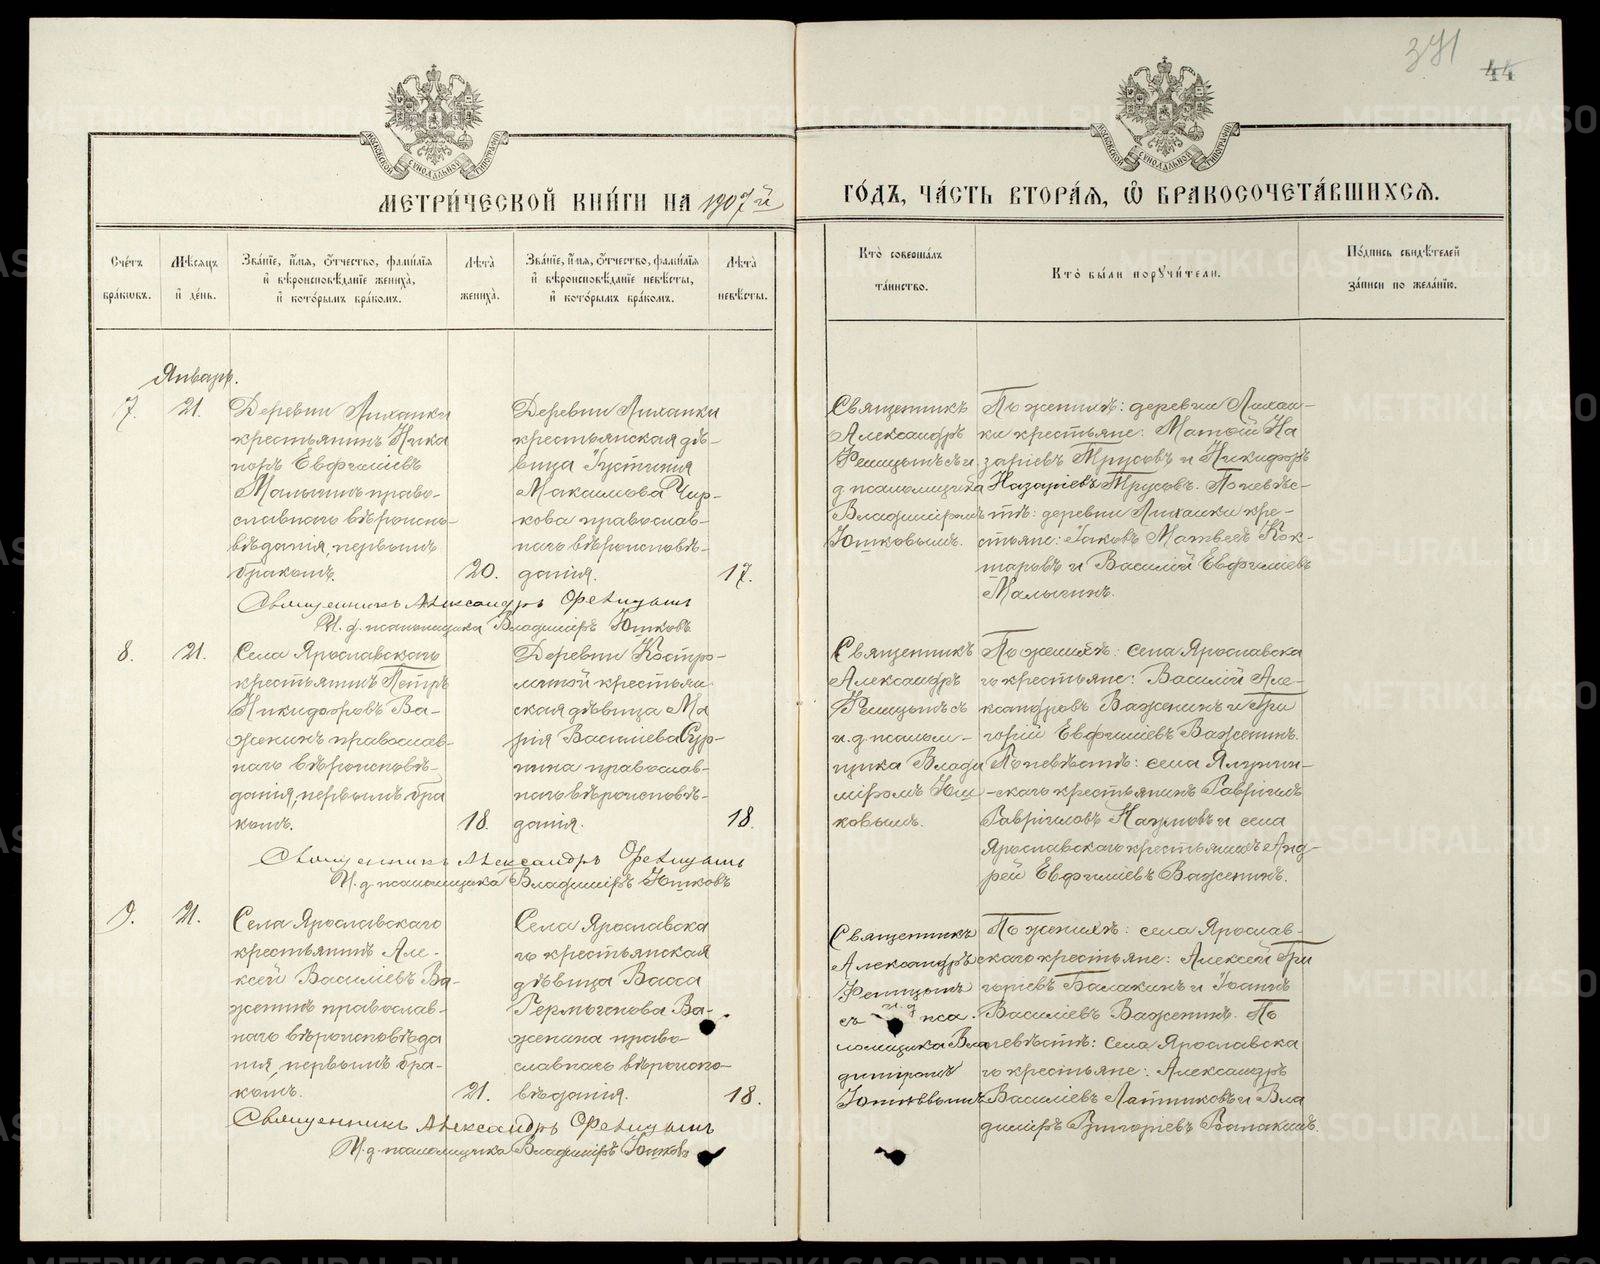 371
44
МОСКОВСКОЙ СѴНОДАЛЬНОЙ ТИПОГРАФІИ
МОСКОВСКОЙ СѴНОДАЛЬНОЙ ТИПОГРАФІИ
МЕТРИ́ЧЕСКОЙ КНИ́ГИ НА 1907 й
ГО́ДЪ, ЧА́СТЬ ВТОРА́Я, Ѽ БРАКОСОЧЕТА́ВШИХСѦ.
Сче́тъ бра́ковъ.
Мѣ́сѧцъ и҆ де́нь.
Зва́нїе, и҆́мѧ, ѻ҆́тчество, фами́лїѧ и҆ вѣроисповѣ́данїе жениха̀, и҆ кото́рымъ бра́комъ.
Лѣ́та жениха̀.
Зва́нїе, и҆́мѧ, ѻ҆́тчество, фами́лїѧ и҆ вѣроисповѣ́данїе невѣ́сты, и҆ кото́рымъ бра́комъ.
Лѣ́та невѣ́сты.
Кто̀ соверша́лъ та́инство.
Кто̀ бы́ли порꙋчи́тели.
По́дпись свидѣ́телей за́писи по жела́нїю.
Январь.
7.
21.
Деревни Лиханки
крестьянинъ Ника
норъ Евфиміевъ
Малыгинъ право-
славнаго вѣроиспо-
вѣданія, первымъ
бракомъ.
20.
Деревни Лиханки
крестьянская дѣ-
вица Іустинія
Максимова Чир-
кова православ-
наго вѣроисповѣ-
данія.
17.
Священникъ
Александръ
съ и.
д псаломщика
Владиміромъ
Юшковымъ.
По женихѣ: деревни Лихан-
ки крестьяне: Матѳій На
заріевъ Трусовъ и Никифоръ
Назаріевъ Трусовъ. По невѣс-
тѣ: деревни Лиханки кре-
стьяне: Іаковъ Матвеевъ Кок-
шаровъ и Василій Евфиміевъ
Малыгинъ.
Священникъ Александръ
И. д. псаломщика Владиміръ Юшковъ
8.
21.
Села Ярославскаго
крестьянинъ Петръ
Никифоровъ Ва-
женинъ православ-
наго вѣроисповѣ-
данія, первымъ бра
комъ.
18.
Деревни Костро-
миной крестьян
ская дѣвица Ма
рія Васильева Сур-
нина православ-
наго вѣроисповѣ-
данія.
18.
Священникъ
Александръ
съ
и.д псалом-
щика Влади
міромъ Юш-
ковымъ.
По женихѣ: села Ярославска
го крестьяне: Василій Але-
ксандровъ Важенинъ и Гри
горій Евфиміевъ Важенинъ.
По невѣстѣ: села
-скаго крестьянинъ Гавріилъ
Гавріиловъ Наумовъ и села
Ярославскаго крестьянинъ Анд-
рей Евфиміевъ Важенинъ.
Священникъ Александръ
И. д. псаломщика Владиміръ Юшковъ
9.
21.
Села Ярославскаго
крестьянинъ Але-
ксѣй Василіевъ Ва-
женинъ православ-
наго вѣроисповѣда
нія, первымъ бра-
комъ.
21.
Села Ярославска
го крестьянская
дѣвица Васса
Гермогенова Ва-
женина право-
славнаго вѣроиспо-
вѣданія.
18.
Священникъ
Александръ
съ и. д пса.
ломщика Вла
диміромъ
Юшковымъ
По женихѣ: села Ярослав-
скаго крестьяне: Алексѣй Гри
горіевъ Балакинъ и Іоаннъ
Василіевъ Важенинъ. По
невѣстѣ: Села Ярославска
го крестьяне: Александръ
Василіевъ Латниковъ и Вла
диміръ Григоріевъ Балакинъ.
Священникъ Александръ
И. д. псаломщика Владиміръ Юшковъ
METRIKI.GASO-URAL.RU